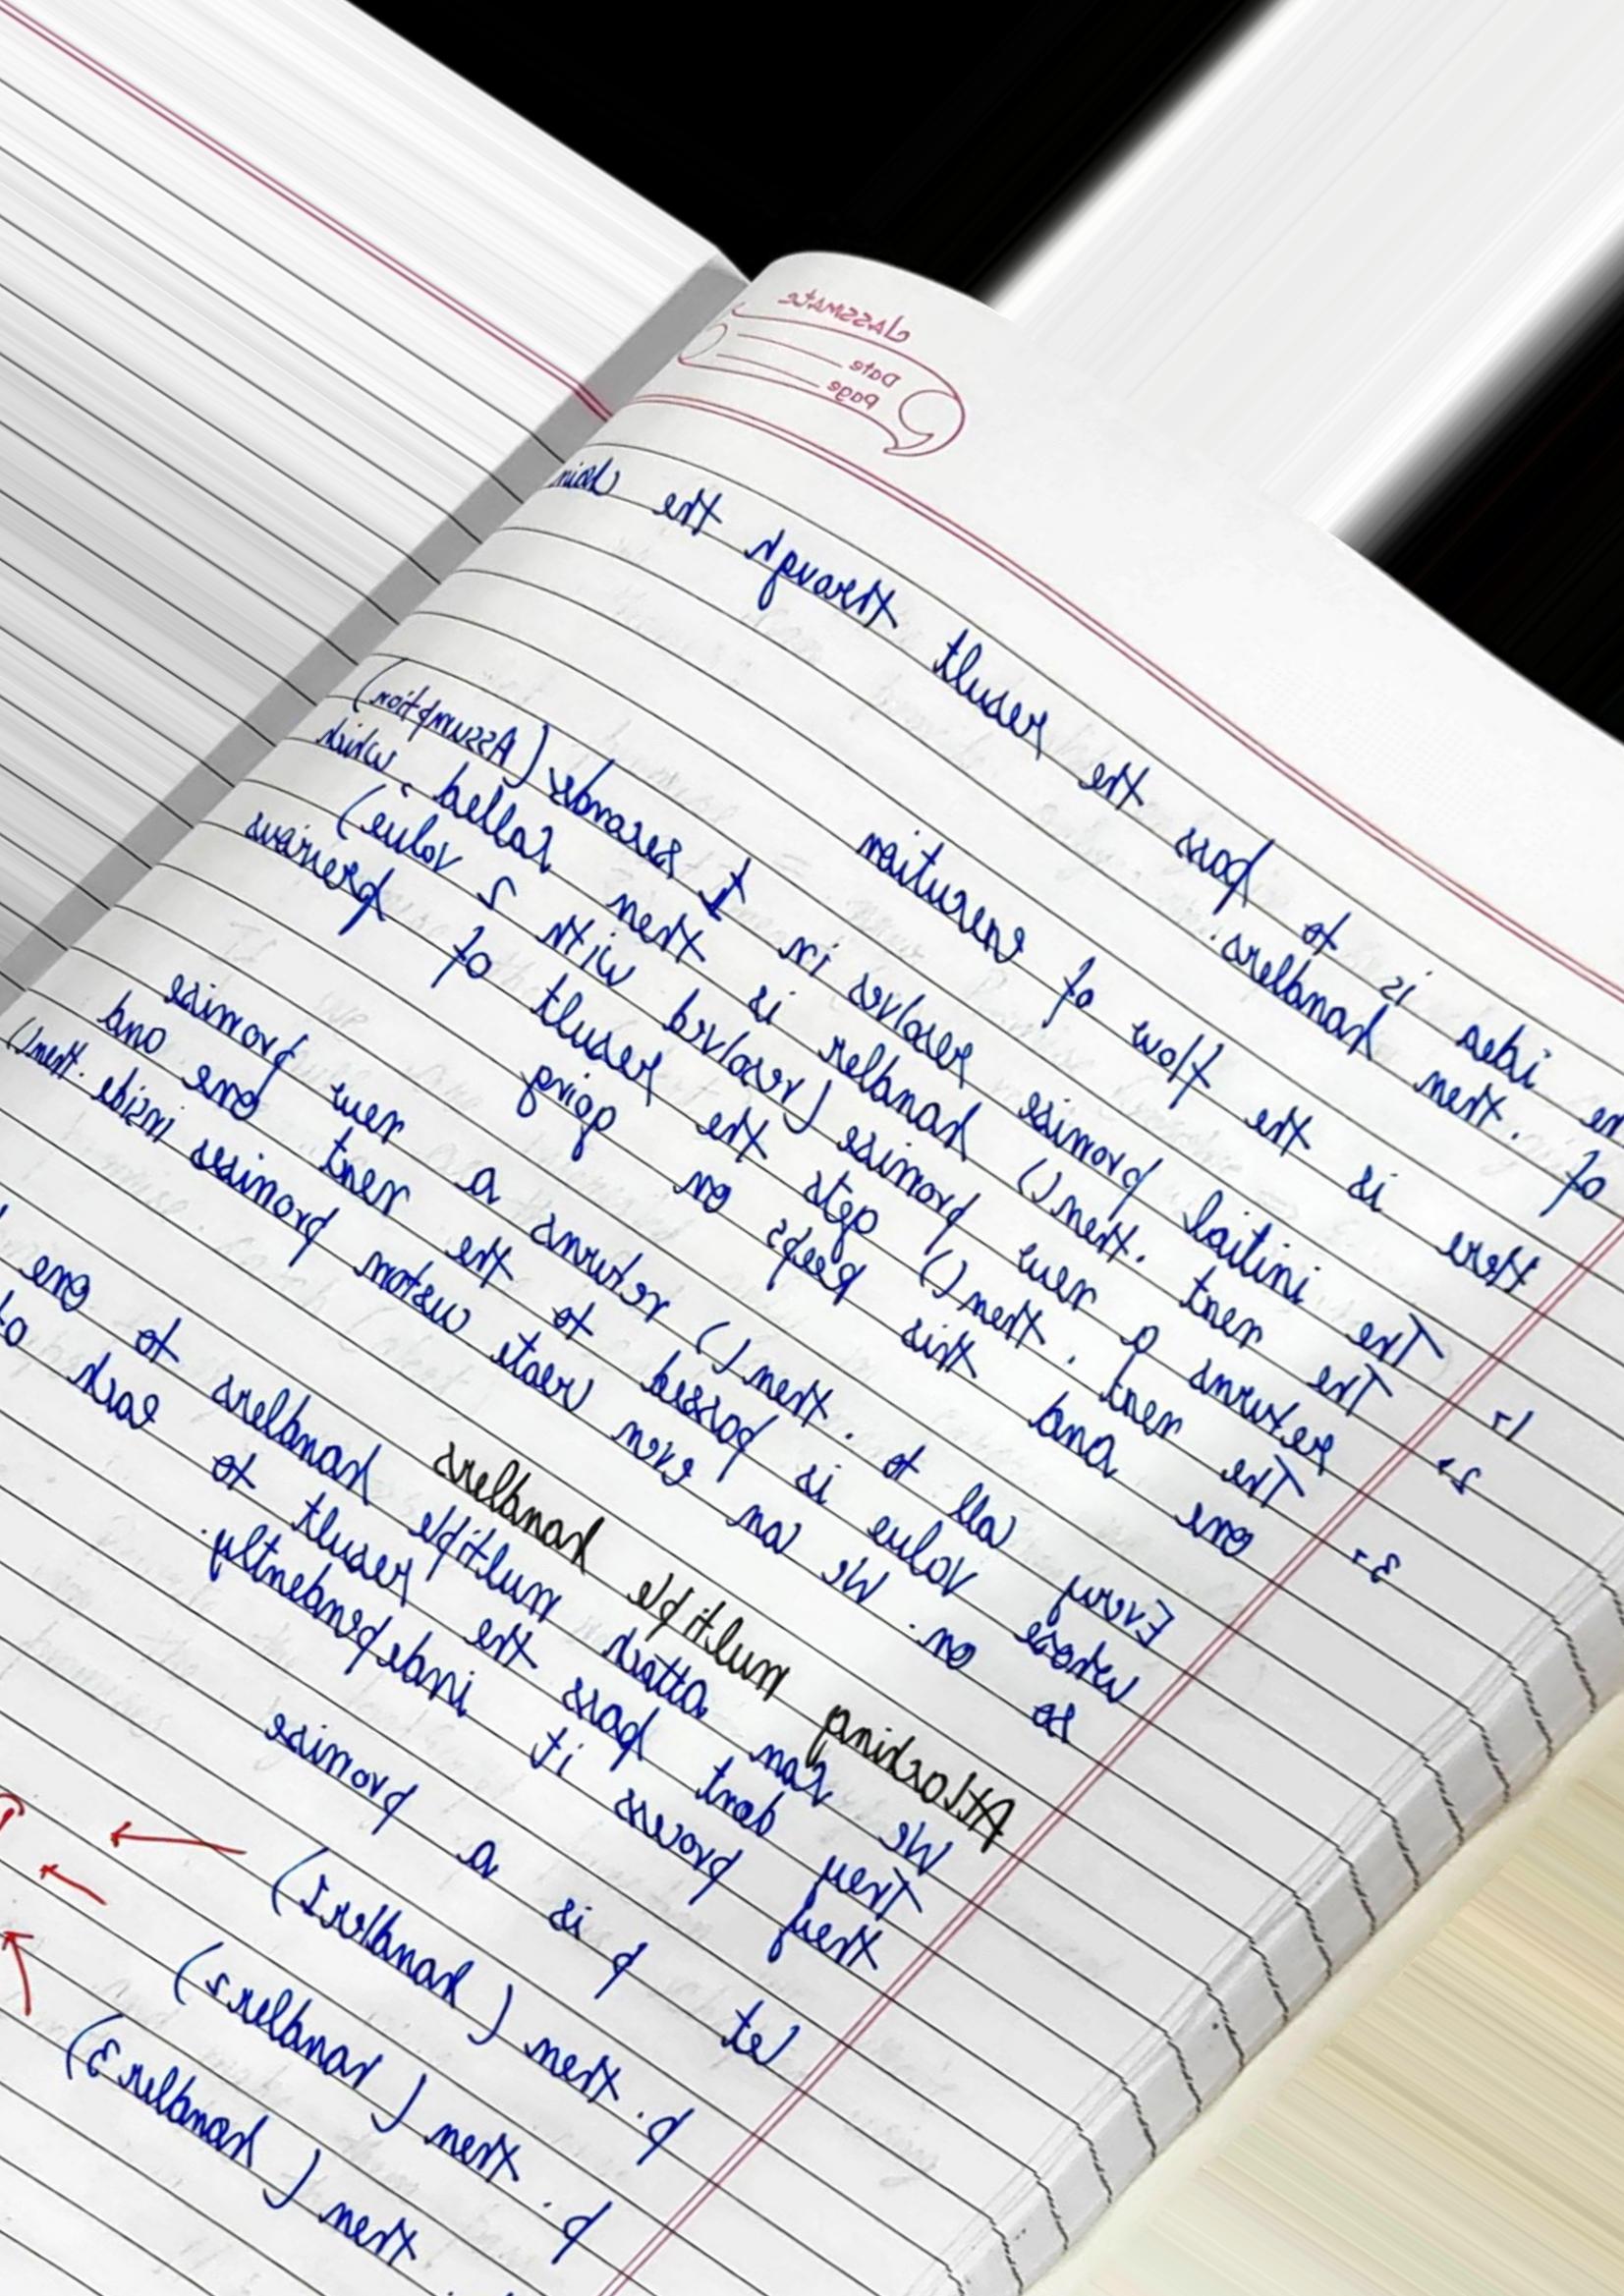 classmate
Date
Page
idea is to pass the result through the chain
of .then handlers.
Here is the flow of execution
1- The initial promise resolves in 1 seconds (Assumption)
2- The next .then() handler is then called, which
returns a new promise (resolved with 2 value)
3- The next .then() gets the result of previous
one and this keeps on going
Every call to .then() returns a new promise
whose value is passed to the next one and
so on. We can even create custom promises inside .then()
Attaching multiple handlers
We can attach multiple handlers to one
They dont pass the result to each
they process it independently.
let p is a promise
p.then (handler1)
p.then (handler2)
then (handler3)